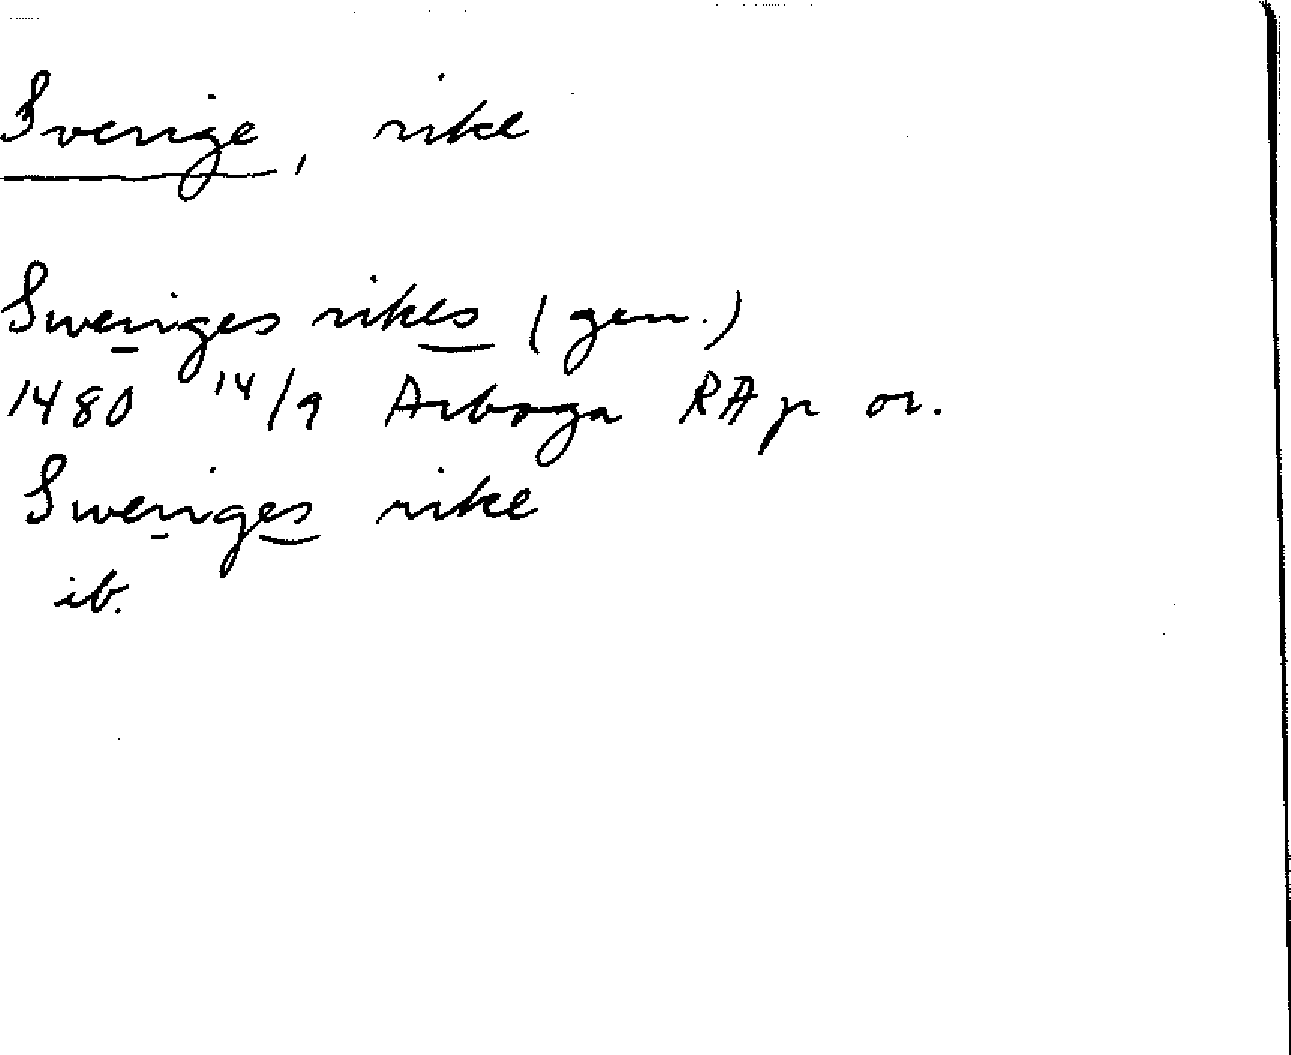 Sverige, rike
Sweriges rikes (gen.)
1480 14/9 Arboga RAp or.
Sweriges rike
ib.